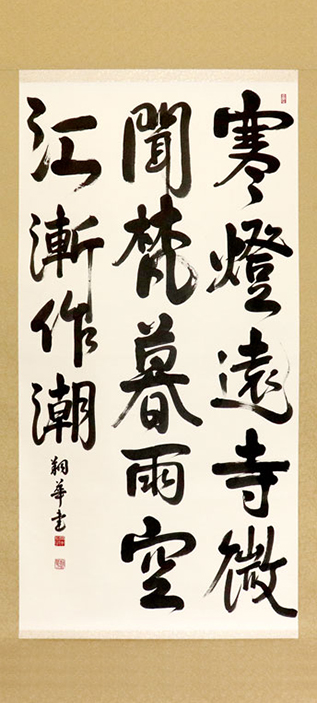 寒燈遠寺微
聞梵暮雨空
江漸作潮
翔華書